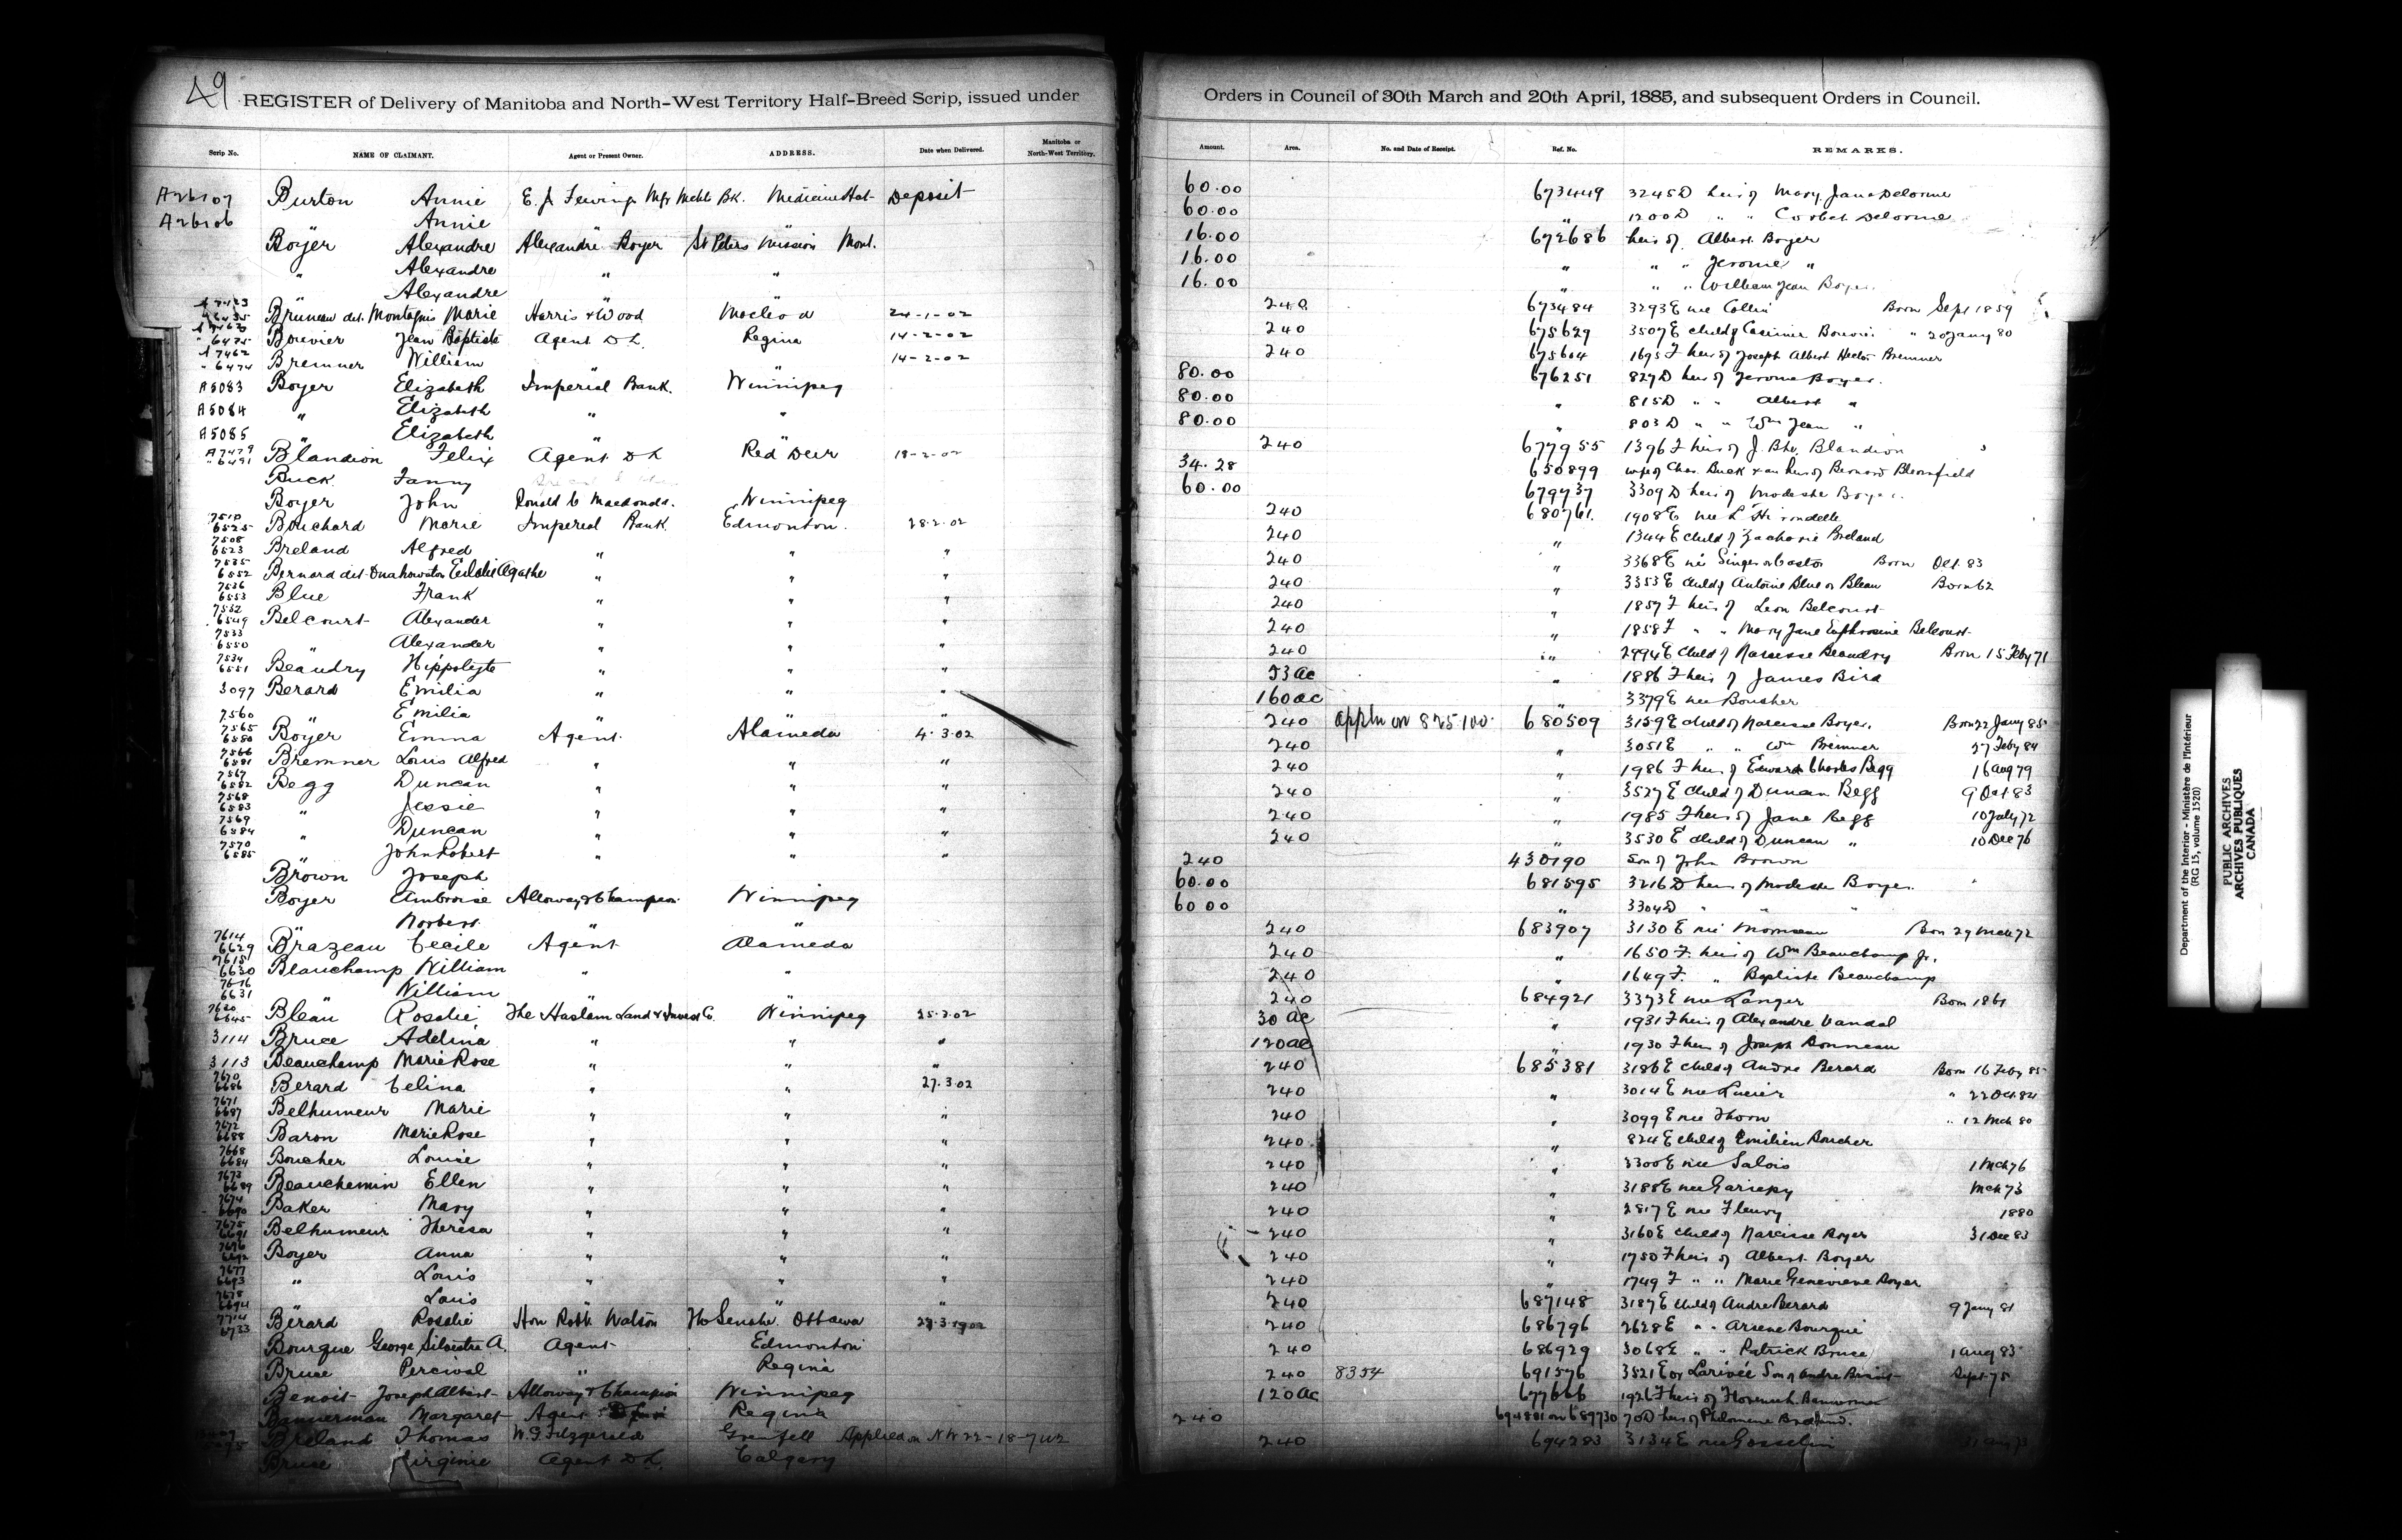 49
REGISTER of Delivery of Manitoba and North-West Territory Half-Breed Scrip, issued under Orders in Council of 30th March and 20th April, 1885, and subsequent Orders in Council.
Scrip No. NAME OF CLAIMANT. Agent or Present Owner. ADDRESS. Date when Delivered. Manitoba or North-West Territory. Amount. Area. No. and Date of Receipt. Ref. No. REMARKS.
A26107 Burton Annie E. J. Fewings Mgr Mchts Bk. Medicine Hat Deposit 60.00 673449 3245D heir of Mary Jane Delorme
A26106 " Annie 60.00 " 1200D " " Corbet Delorme
Boyer Alexandre Alexandre Boyer St Peters Mission Mont. 16.00 672686 heir of Albert Boyer
" Alexandre " " 16.00 " " " Jerome "
Alexandre 16.00 " " William Jean Boyer
Bruneau dit Montagnis Marie Harris & Wood Macleod 24-1-02 240 673484 3293E nee Collin Born Sept 1859
6475 Bouvier Jean Baptiste Agent D L Regina 14-2-02 240 675629 3507E child of Casimir Bouvier " 20 Jany 80
A7462 6474 Bremner William " " 14-2-02 240 675604 1695F heir of Joseph Albert Hector Bremner
A5083 Boyer Elizabeth Imperial Bank. Winnipeg 80.00 676251 827D heir of Jerome Boyer.
A5084 " Elizabeth " " 80.00 " 815D " " Albert "
A5085 " Elizabeth " " 80.00 " 803D " " Wm Jean "
A7479 6491 Blandion Felix Agent D L Red Deer 18-2-02 240 677955 1396F heir of J. Bte. Blandion
Buck Fanny 34.28 650899 wife of Chas. Buck & an heir of Bernard Bloomfield
Boyer John Ronald C Macdonald. Winnipeg 60.00 679737 3309D heir of Modeste Boyer.
7510 6525 Bouchard Marie Imperial Bank. Edmonton. 28.2.02 240 680761. 1908E nee L'Hirondelle
7508 6523 Breland Alfred " " " 240 " 1344E child of Zacharie Breland
7535 6552 Bernard dit Eulalie Agathe " " " 240 " 3368E Born Oct. 83
7536 6553 Blue Frank " " " 240 " 3353E child of Antoine Blue or Bleau Born 62
7532 6549 Belcourt Alexander " " " 240 " 1857F heir of Leon Belcourt
7533 6550 " Alexander " " " 240 " 1858F " " Mary Jane Euphrosine Belcourt
7534 6551 Beaudry Hippolyte " " " 240 " 2994E child of Narcisse Beaudry Born 15 Feby 71
3097 Berard Emilia " " " 53 ac " 1886F heir of James Bird
7560 " Emilia " " " 160 ac " 3379E nee Bousher
7565 6580 Boyer Emma Agent. Alameda 4.3.02 240 appln on 825100. 680509 3159E child of Narcisse Boyer. Born 22 Jany 85
7566 6581 Bremner Louis Alfred " " " 240 " 3051E " " Wm Bremner 27 Feby 84
7567 6582 Begg Duncan " " " 240 " 1986F heir of Edward Charles Begg 16 Aug 79
7568 6583 " Jessie " " " 240 " 3527E child of Duncan Begg 9 Oct 83
7569 6584 " Duncan " " " 240 " 1985F heir of Jane Begg 10 July 72
7570 6585 " John Robert " " " 240 " 3530E child of Duncan " 10 Dec 76
Brown Joseph 240 430190 Son of John Brown
Boyer Ambroise Alloway & Champion Winnipeg 60.00 681595 3216D heir of Modeste Boyer.
" Norbert " " 60.00 " 3304D " "
7614 6629 Brazeau Cecile Agent Alameda 240 683907 3130E nee Morneau Born 29 Mch 72
7615 6630 Beauchamp William " " 240 " 1650F. heir of Wm Beauchamp Jr.
7616 6631 " William " " 240 " 1649F. " Baptiste Beauchamp
7630 6645 Bleau Rosalie The Haslam Land & Invest Co. Winnipeg 25.3.02 240 684921 3373E nee Langer Born 1861
3114 Bruce Adelina " " " 30 ac " 1931F heir of Alexandre Vandal
3113 Beauchamp Marie Rose " " " 120 ac " 1930F heir of Joseph Bonneau
7670 6686 Berard Celina " " 27.3.02 240 685381 3186E child of Andre Berard Born 16 Feby 85
7671 6687 Belhumeur Marie " " " 240 " 3014E nee Lucier " 22 Oct 84
7672 6688 Baron Marie Rose " " " 240 " 3099E nee Thorn " 12 Mch 80
7668 6684 Boucher Louise " " " 240 " 824E child of Emilien Boucher
7673 6689 Beauchemin Ellen " " " 240 " 3300E nee Salois 1 Mch 76
7674 6690 Baker Mary " " " 240 " 3188E nee Gariepy Mch 73
7675 6691 Belhumeur Theresa " " " 240 " 2817E nee Fleury 1880
7676 6692 Boyer Anna " " " 240 " 3160E child of Narcisse Boyer 31 Dec 83
7677 6693 " Louis " " " 240 " 1750F heir of Albert Boyer
7678 6694 " Louis " " " 240 " 1749F " " Marie Genevieve Boyer
7714 6733 Berard Rosalie Hon Robt Watson The Senate. Ottawa 29.3.1902 240 687148 3187E child of Andre Berard 9 Jany 81
Bourque George Silvestre A. Agent Edmonton 240 686796 2628E " " Arsene Bourque
Bruce Percival " Regina 240 686929 3068E " " Patrick Bruce 1 Aug 83
Benoit Joseph Albert Alloway & Champion Winnipeg 240 8354 691576 3521E or Larivée Son of Andre Benoit Sept 75
Bannerman Margaret Agent Regina 120 ac 677666 1926F heir of Bannerman
Breland Thomas W. G. Fitzgerald Grenfell Applied on NW 22-18-7W2 240 694881 on 689730 70D heir of Philomene Breland.
Bruce Virginie Agent D L. Calgary 240 694283 3134E nee Gosselin
Department of the Interior - Ministère de l'Intérieur
(RG 15, volume 1520)
PUBLIC ARCHIVES
ARCHIVES PUBLIQUES
CANADA